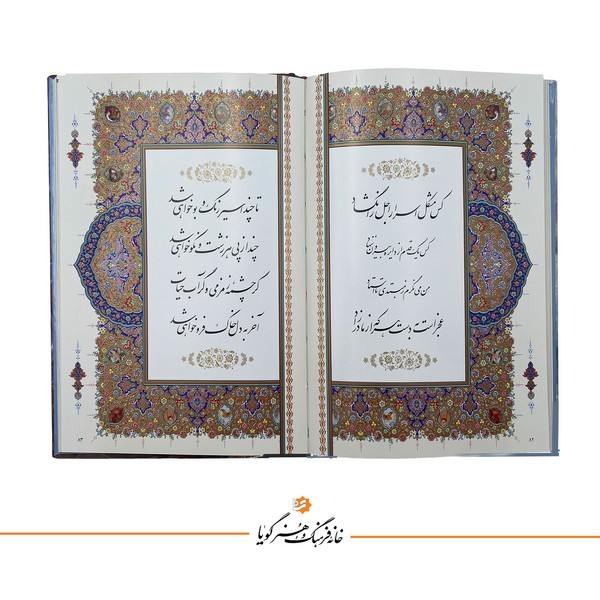 کس مشکل اسرار اجل را نگشاد
کس یک قدم از دایره بیرون ننهاد
من می‌نگرم ز مبتدی تا استاد
عجز است به دست هر که از مادر زاد
۸۲
تا چند اسیر رنگ و بو خواهی شد
چند از پی هر زشت و نکو خواهی شد
گر چشمه زمزمی و گر آب حیات
آخر به دل خاک فرو خواهی شد
۸۳
خانه فرهنگ و هنر گویا